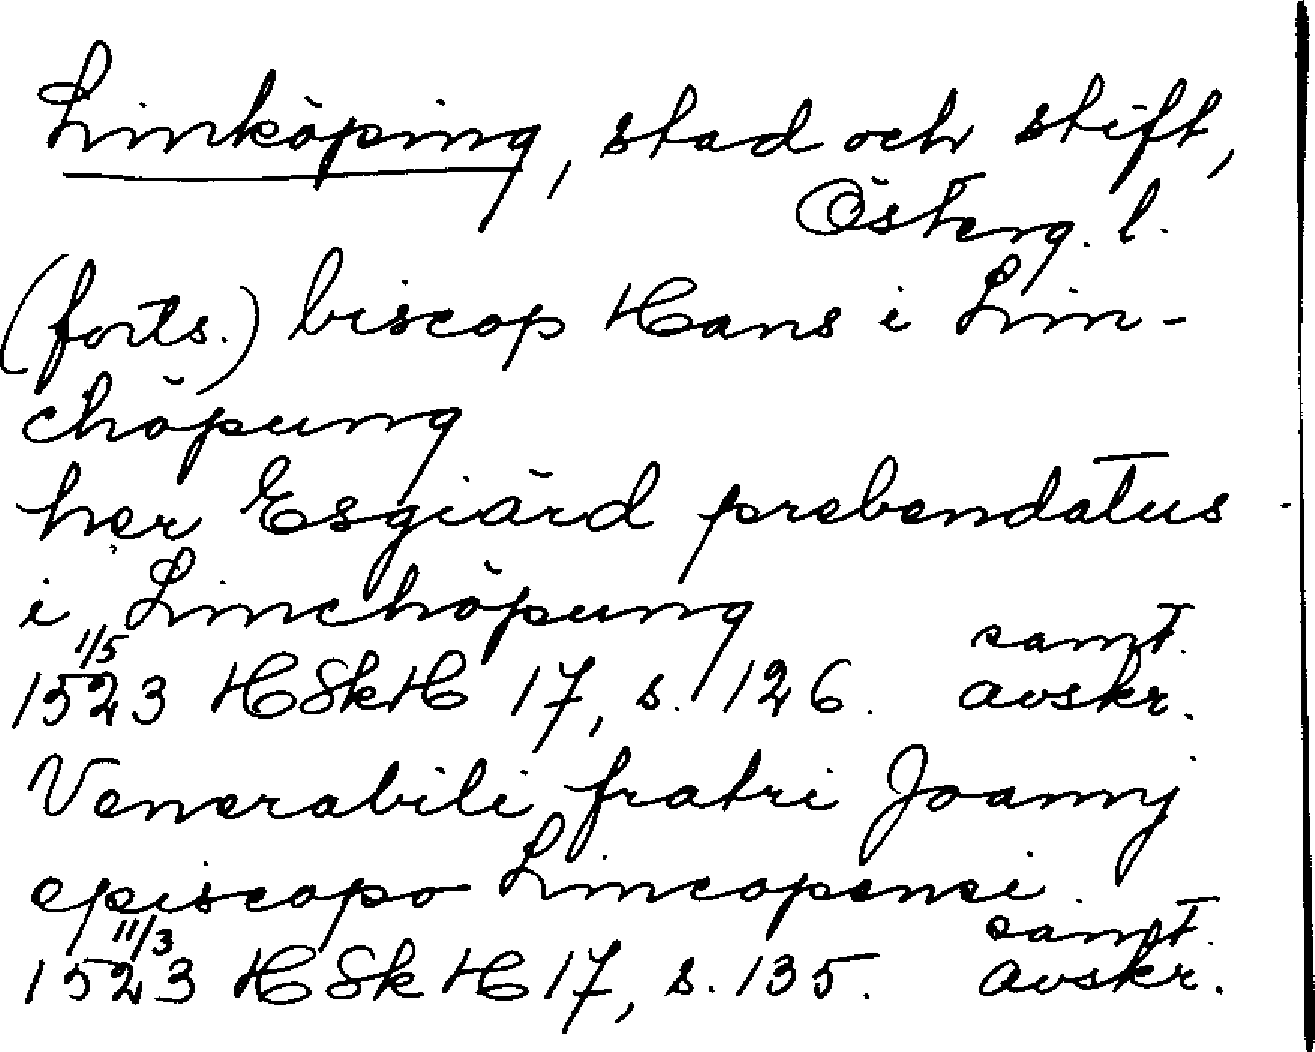 Linköping, stad och stift,
Österg. l.
(forts.) biscop Hans i Lin-
chöpung
her Esgiärd prebendatus
i Linchöpung
1/5 samt.
1523 HSkH 17, s. 126. avskr.
Venerabili fratri Joannj
episcopo Lincopensi
11/3 samt.
1523 HSkH 17, s. 135. avskr.